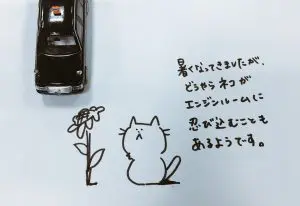 暑くなってきましたが、
どうやらネコが
エンジンルームに
忍び込むことも
あるようです。